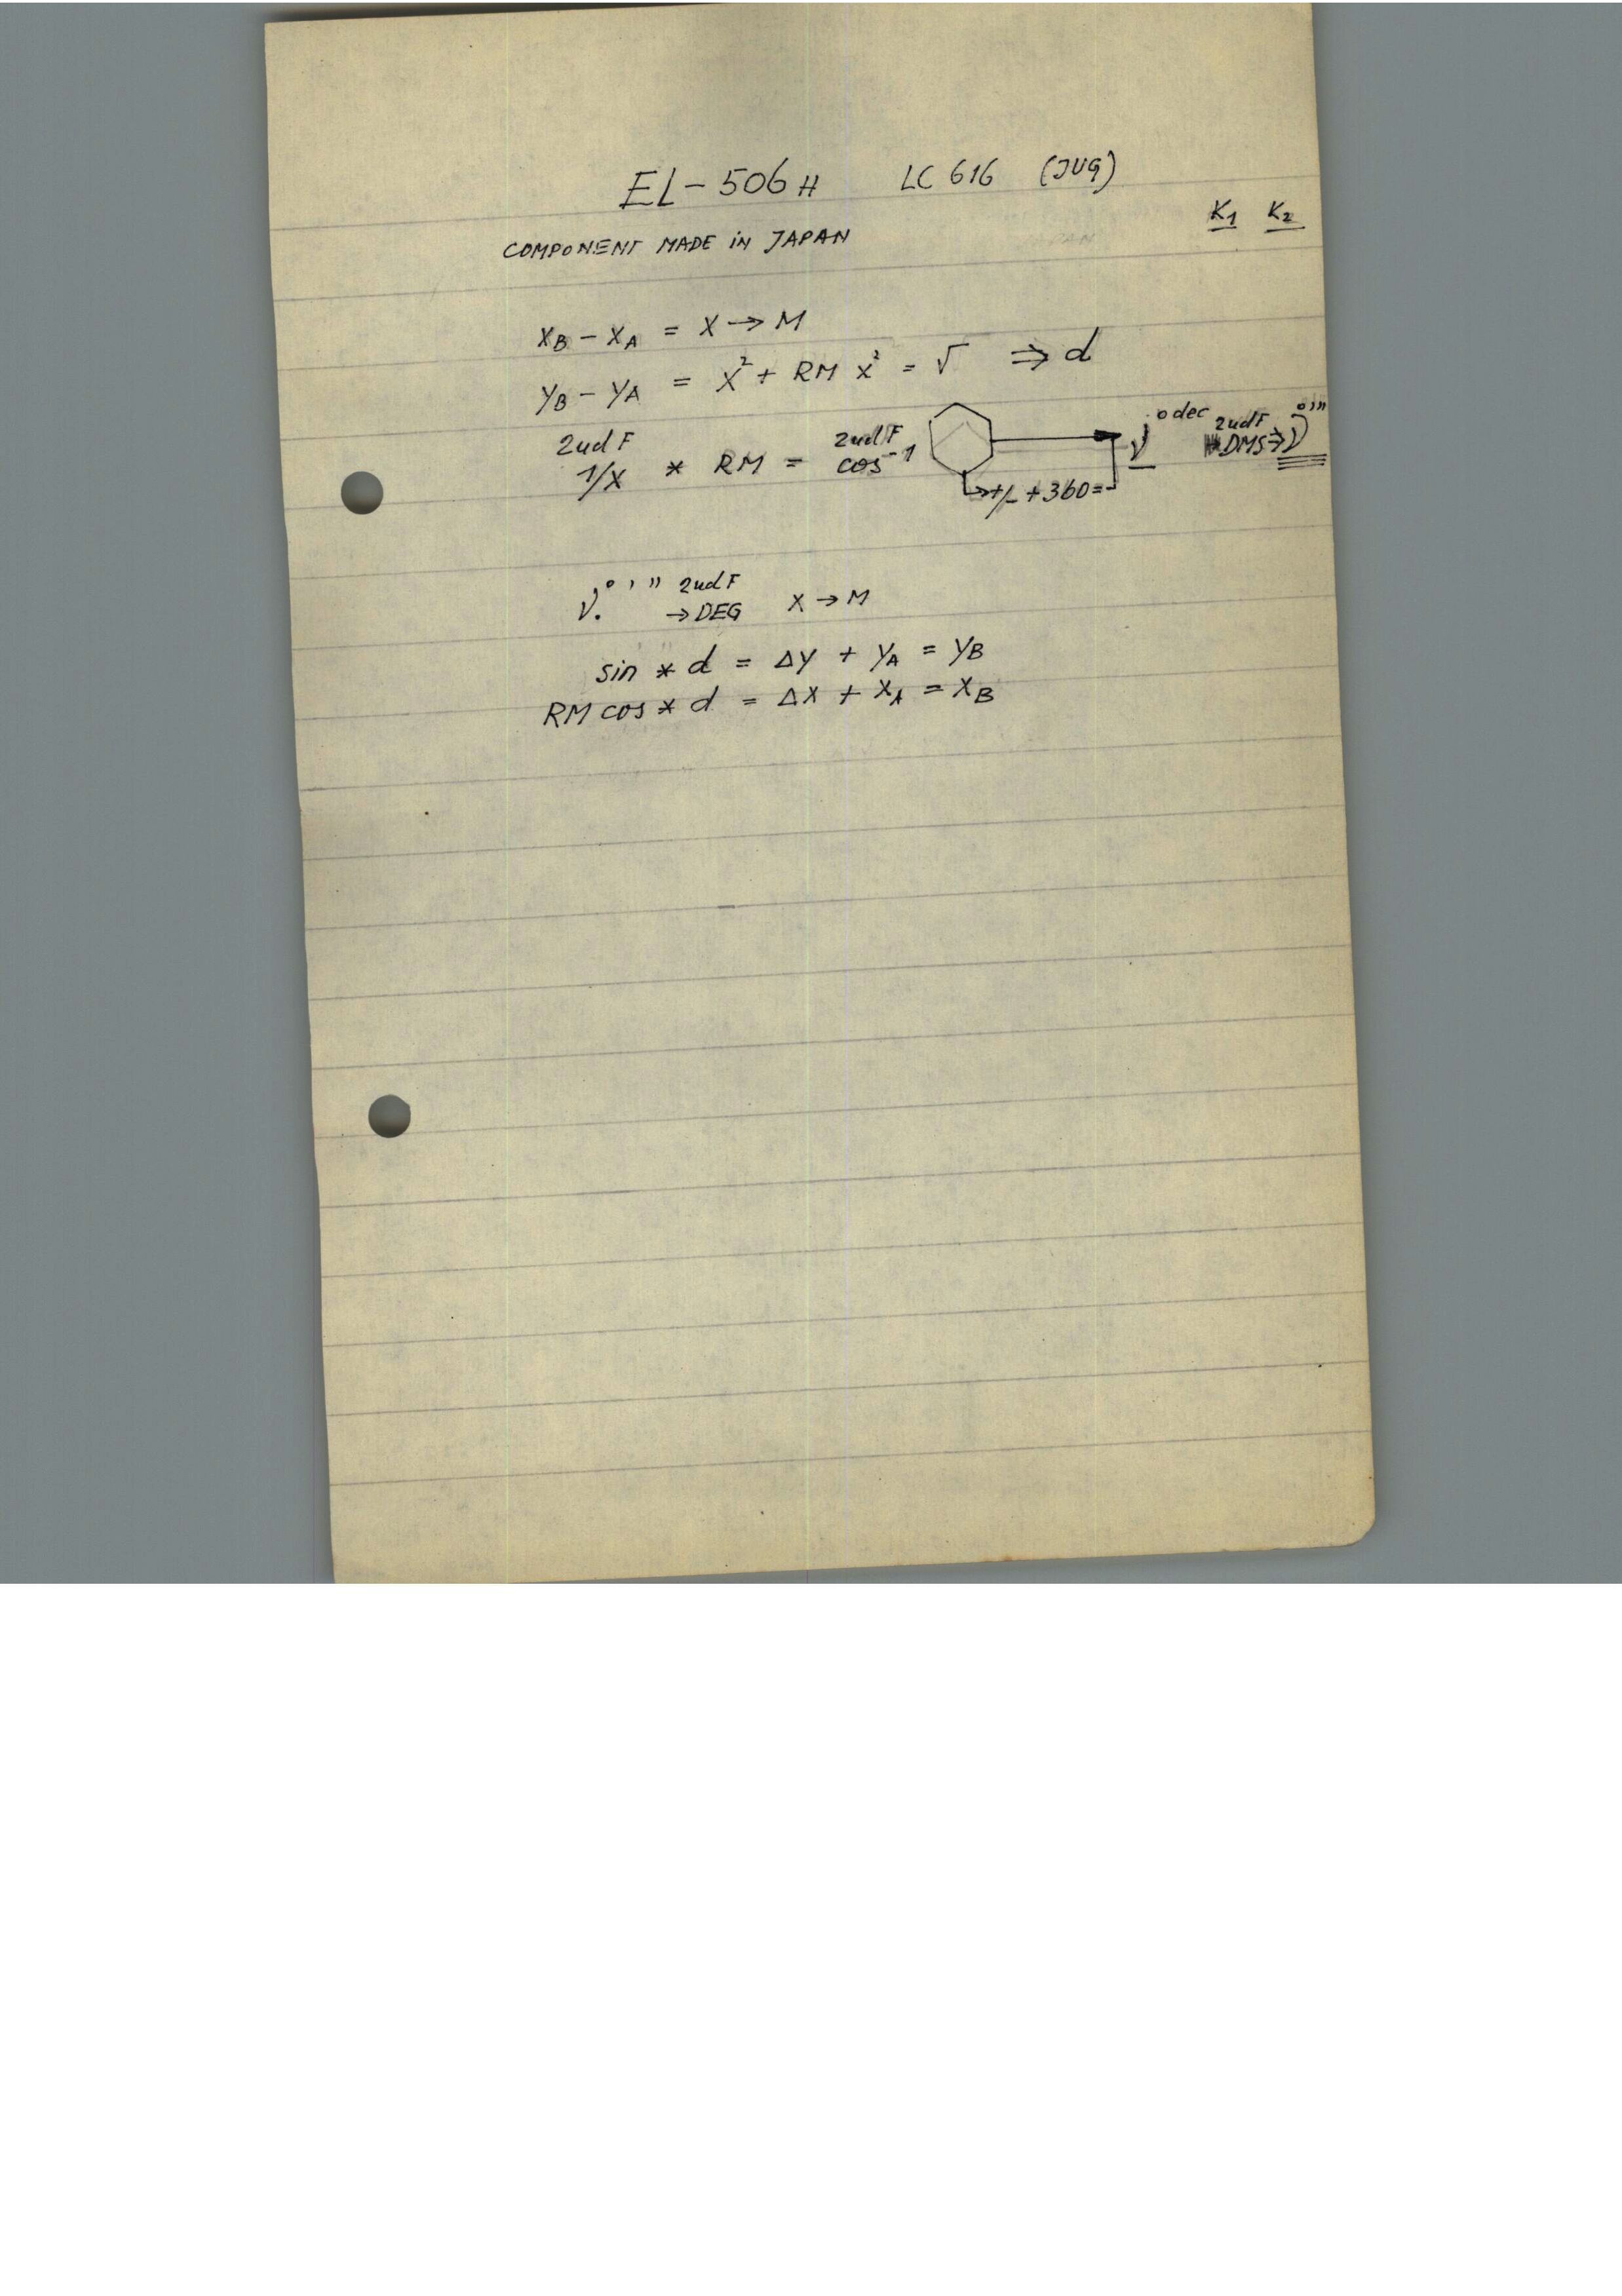 EL-506H LC 616 (JUG)
K1 K2
COMPONENT MADE iN JAPAN
xB - xA = X → M
yB - yA = X² + RM x² = √ ⇒ d
2ndF 2ndF ° dec 2ndF ° ' "
1/X * RM = cos⁻¹ → ν →DMS⇒ ν
↳ +/- +360=
ν ° ' " 2ndF
→DEG X → M
sin * d = Δy + yA = yB
RM cos * d = Δx + xA = xB